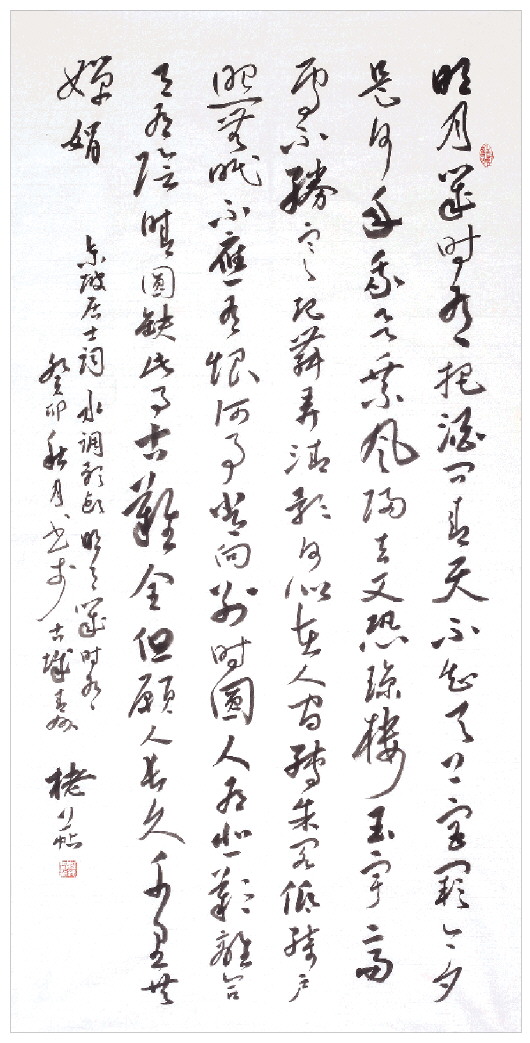 明月幾时有把酒问青天不知天上宫阙今夕
是何年我欲乘风歸去又恐瓊楼玉宇高
處不勝寒起舞弄清影何似在人间轉朱阁低綺户
照無眠不應有恨何事长向别时圓人有悲歡離合
月有陰晴圓缺此事古難全但願人长久千里共
嬋娟
东坡居士词水调歌头明月幾时有
癸卯秋月书于古城青州